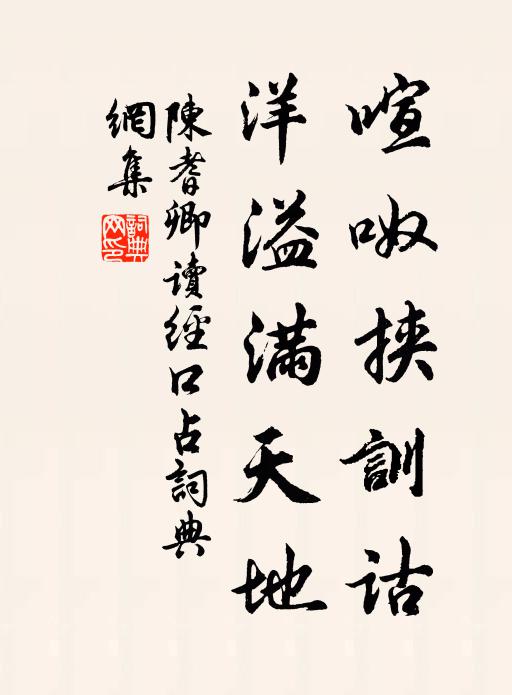 喧呶挾訓詁
洋溢滿天地
陳耆卿讀經口占詞典
網集
詞典網印